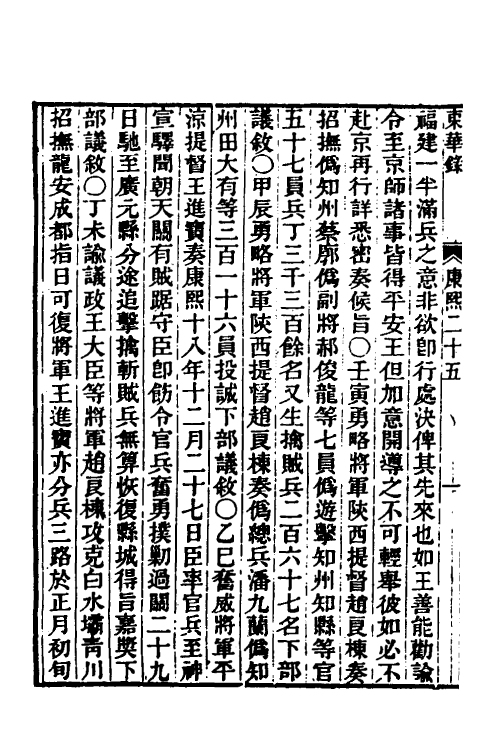 東華錄 康熙二十五 一
福建一半滿兵之意非欲卽行處决俾其先來也如王善能勸諭
令至京師諸事皆得平安王但加意開導之不可輕舉彼如必不
赴京再行詳悉密奏候旨〇壬寅勇略將軍陝西提督趙良棟奏
招撫僞知州蔡廓僞副將郝俊龍等七員僞遊擊知州知縣等官
五十七員兵丁三千三百餘名又生擒賊兵二百六十七名下部
議敘〇甲辰勇略將軍陝西提督趙良棟奏僞總兵潘九蘭僞知
州田大有等三百一十六員投誠下部議敘〇乙巳奮威將軍平
涼提督王進寶奏康熙十八年十二月二十七日臣率官兵至神
宣驛聞朝天關有賊踞守臣卽飭令官兵奮勇撲勦過關二十九
日馳至廣元縣分途追擊擒斬賊兵無算恢復縣城得旨嘉獎下
部議敘〇丁未諭議政王大臣等將軍趙良棟攻克白水壩靑川
招撫龍安成都指日可復將軍王進寶亦分兵三路於正月初旬